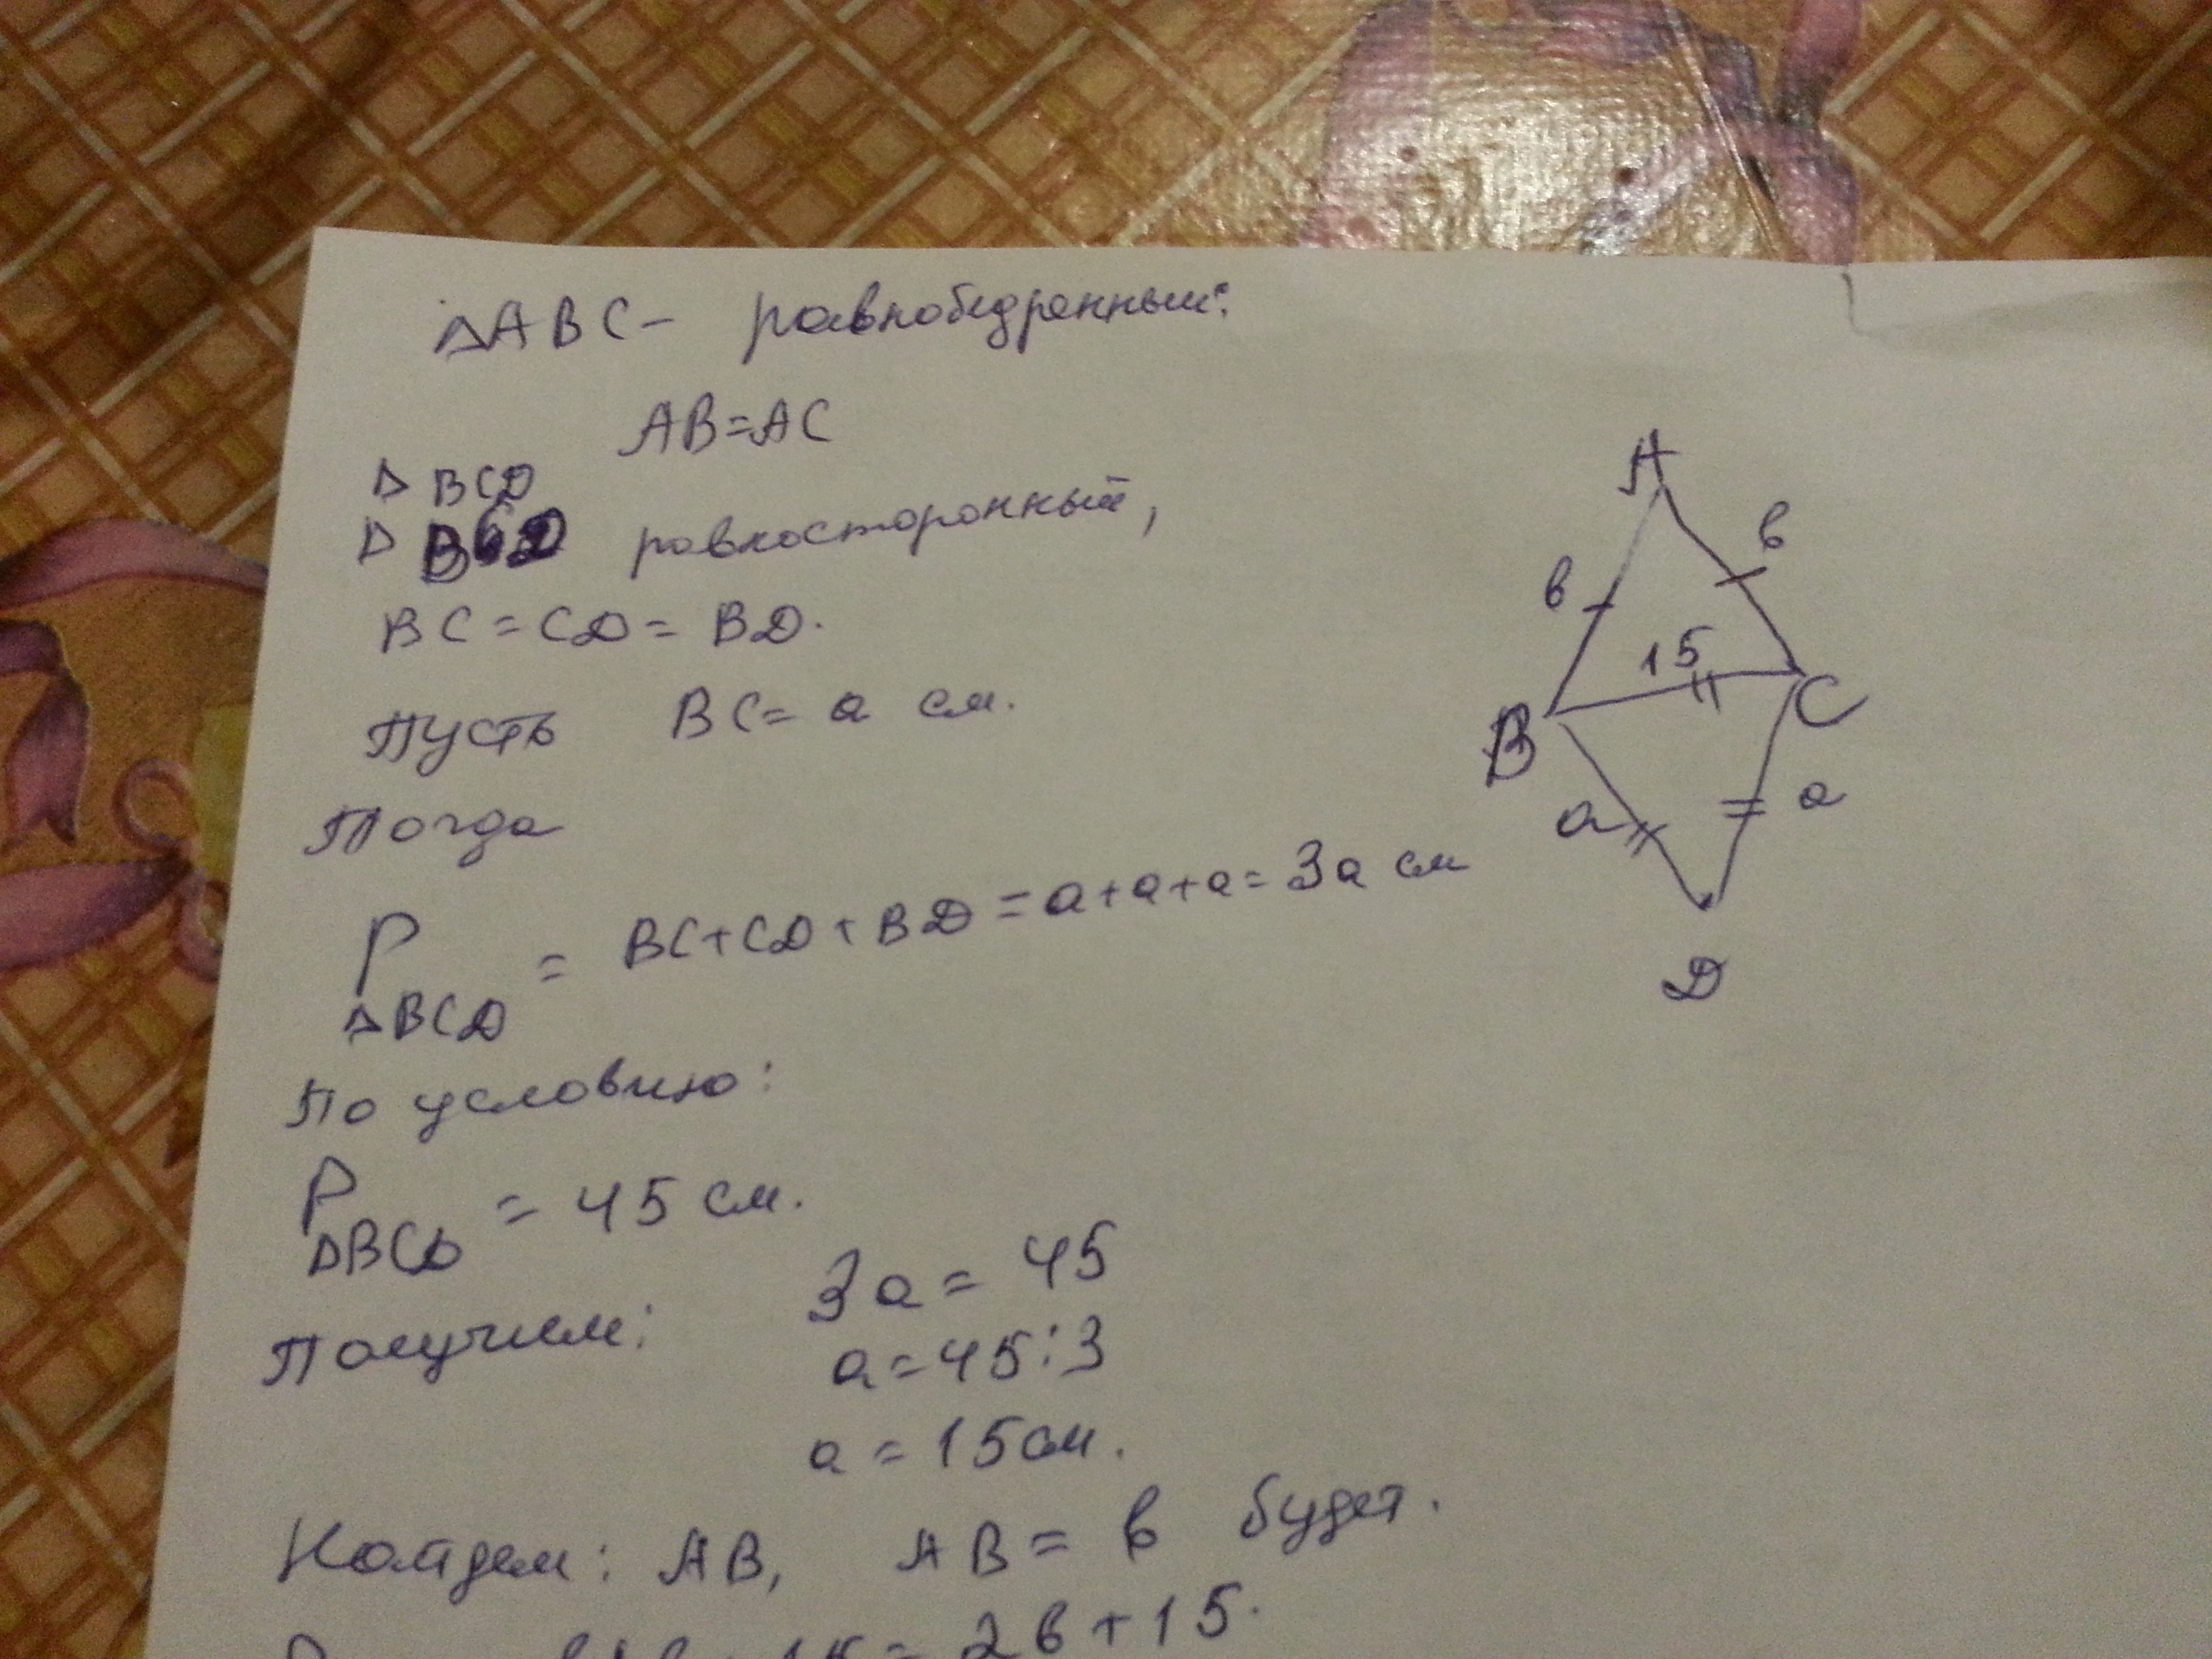 ΔABC - равнобедренный:
AB=AC
Δ BCD
Δ равносторонный,
BC = CD = BD.
Пусть BC = a см.
Тогда
P ΔBCD = BC+CD+BD = a+a+a = 3a см
По условию:
P ΔBCD = 45 см.
Получим: 3a = 45
a = 45:3
a = 15 см.
Найдем: AB, AB = в будет.
= 2в + 15.
A
в
в
15
B
C
a
a
D